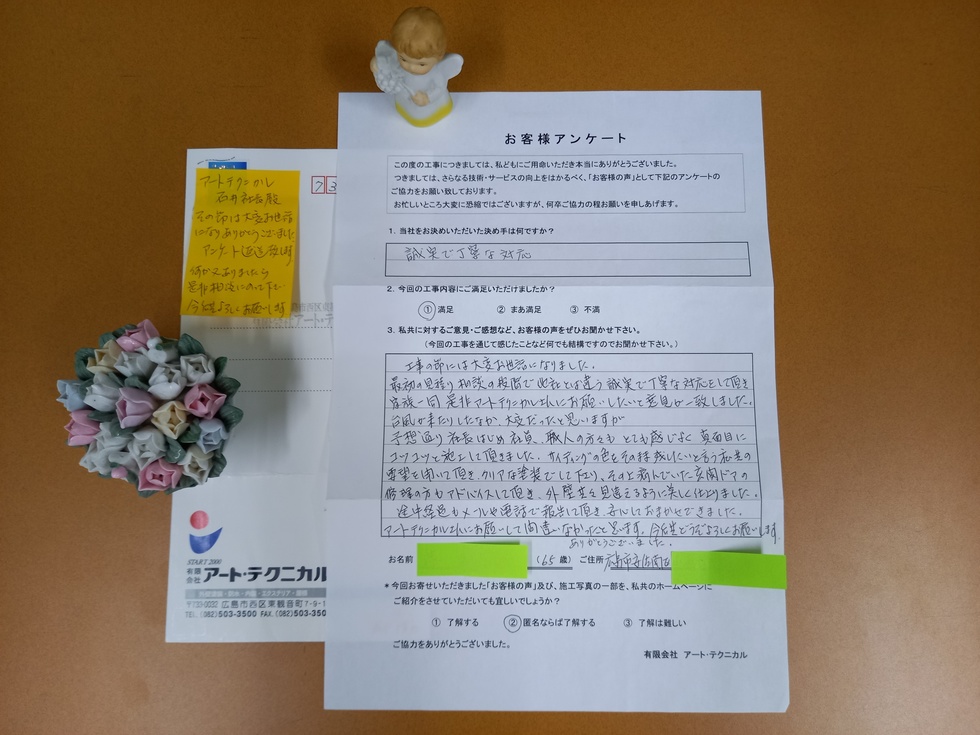 アートテクニカル
石井社長殿
その節は大変お世話
になりありがとうございました
アンケート返送致します
何か又ありましたら
是非相談にのって下さい
今後共よろしくお願いします
73
START 2000
有限会社 アート・テクニカル
〒733-0032 広島市西区東観音町7-9-1
TEL (082)503-3500 FAX. (082)503-350
お客様アンケート
この度の工事につきましては、私どもにご用命いただき本当にありがとうございました。
つきましては、さらなる技術・サービスの向上をはかるべく、「お客様の声」として下記のアンケートの
ご協力をお願い致しております。
お忙しいところ大変に恐縮ではございますが、何卒ご協力の程お願いを申しあげます。
1. 当社をお決めいただいた決め手は何ですか?
誠実で丁寧な対応
2. 今回の工事内容にご満足いただけましたか?
① 満足 ② まあ満足 ③ 不満
3. 私共に対するご意見・ご感想など、お客様の声をぜひお聞かせ下さい。
(今回の工事を通じて感じたことなど何でも結構ですのでお聞かせ下さい。)
工事の節には大変お世話になりました。
最初の見積り相談の段階で他社とは違う誠実で丁寧な対応をして頂き
家族一同 是非アートテクニカルさんにお願いしたいと意見が一致しました。
台風が来たりしたなか、大変だったと思いますが
予想通り社長はじめ社員、職人の方々も とても感じよく 真面目に
コツコツと施工して頂きました。サイディングの色をその持残したいと言う私共の
要望を聞いて頂き、クリアな塗装でして下さり、その上痛んでいた玄関ドアの
修理の方もアドバイスして頂き、外壁共を見違えるように美しく仕上りました。
途中経過もメールや電話で報告して頂き、安心しておまかせできました。
アートテクニカルさんにお願いして間違いなかったと思います。今後共どうぞよろしくお願いします
ありがとうございました。
お名前 (65歳) ご住所 広島市安佐南区
*今回お寄せいただきました「お客様の声」及び、施工写真の一部を、私共のホームページに
ご紹介をさせていただいても宜しいでしょうか?
① 了解する ② 匿名ならば了解する ③ 了解は難しい
ご協力をありがとうございました。
有限会社 アート・テクニカル